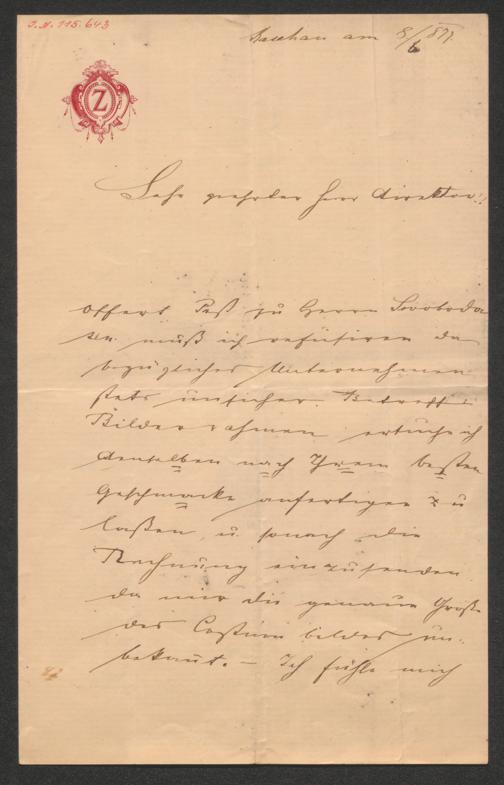 J.N. 115.643
am 8/6 1877.
Z
Sehr geehrter Herr Direktor!!
Offert Pest zu Herrn Svoboda
muß ich refüsiren da
bezügliches Unternehmen
stets unsicher. Betreff
Bilder rahmen ersuche ich
denselben nach Ihrem besten
Geschmacke anfertigen zu
laßen, u. sonach die
Rechnung einzusenden
da mir die genaue Größe
des Costüm bildes un-
bekannt. – Ich fühle mich